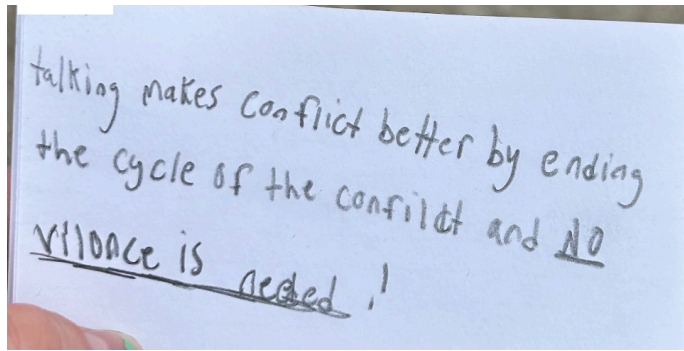 talking makes conflict better by ending
the cycle of the confilct and NO
vilonce is needed!